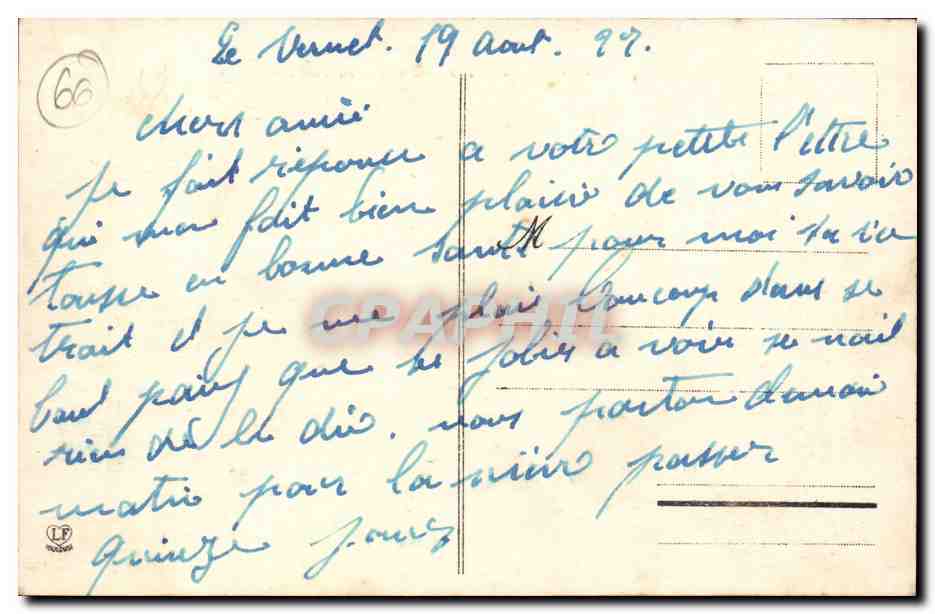 Le Vernet. 19 Aout. 27.
66
chers amie
je fait réponse a votre petite l'ettre
qui man fait bien plaisir de vous savoir
tousse en bonne santé pour moi sa va
trait et je me plais baucoup dans se
baut pais que se jolies a voir se nail
rien dé le dir. nous parton
matin pour la niér passer
quinze jours
CPAPHIL
LF